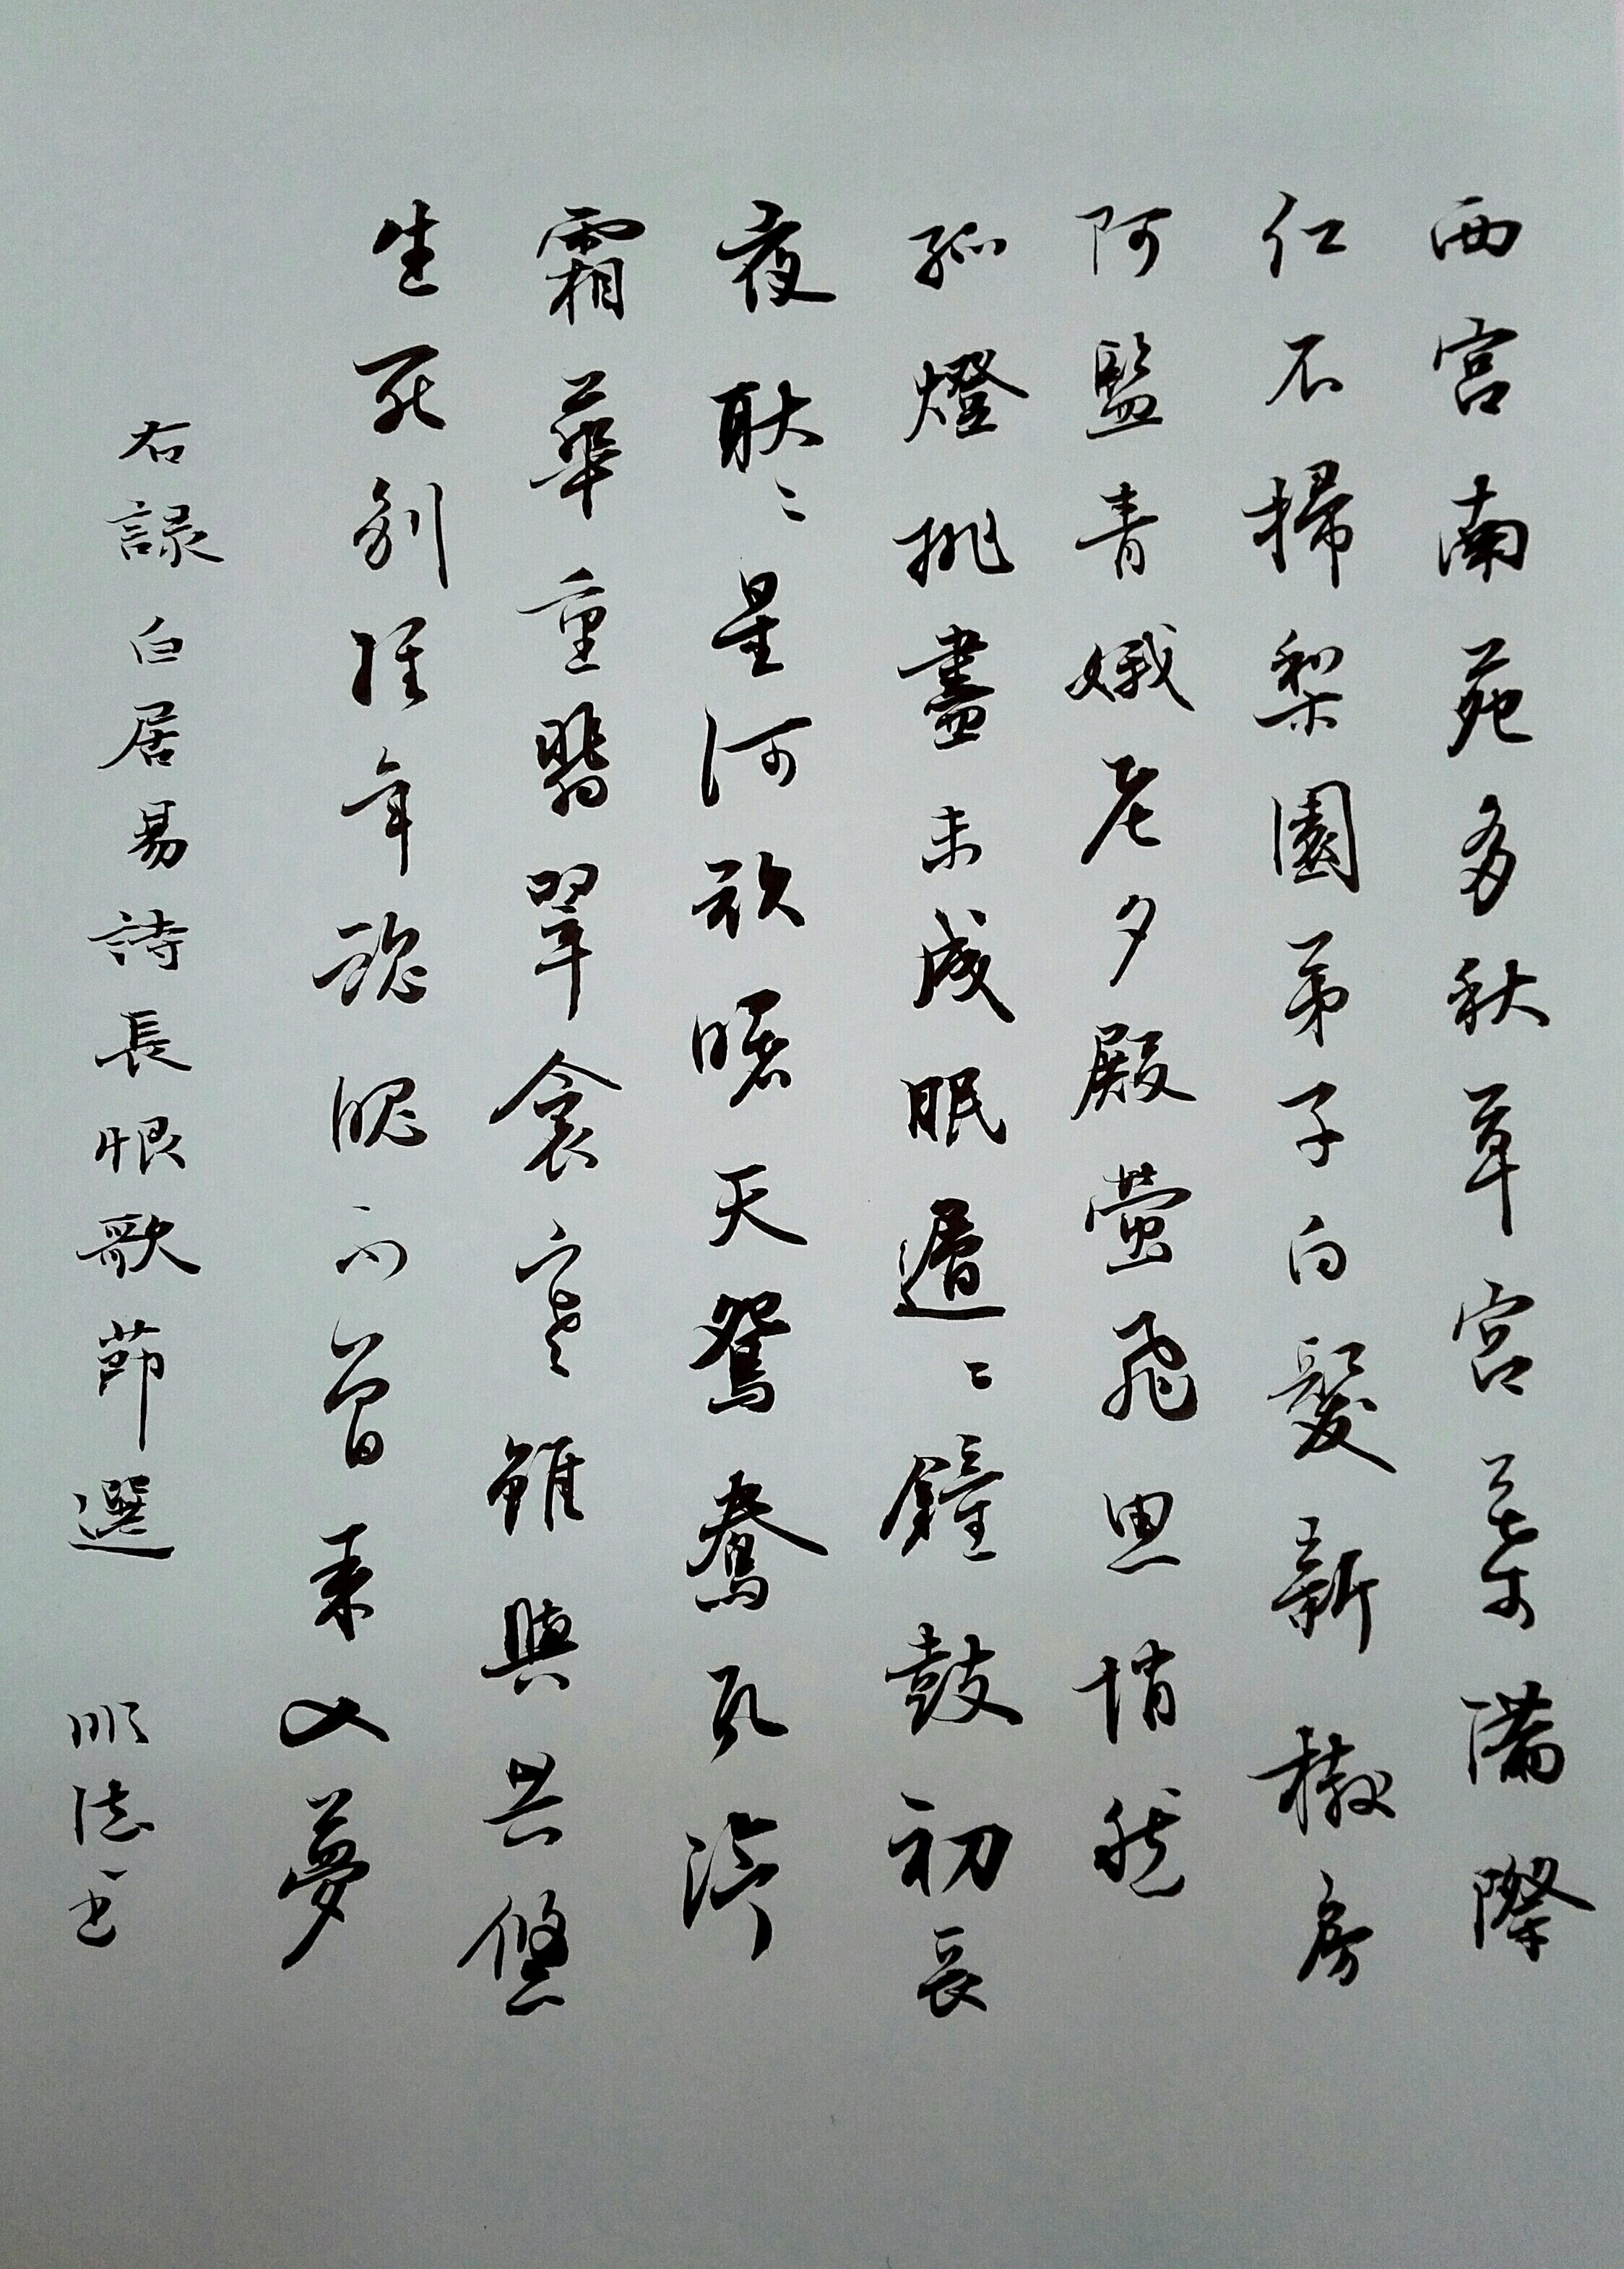 西宮南苑多秋草宮葉滿階
紅不掃梨園弟子白髮新椒房
阿監青娥老夕殿螢飛思悄然
孤燈挑盡未成眠遲〻鐘鼓初長
夜耿〻星河欲曙天鴛鴦瓦冷
霜華重翡翠衾寒誰與共悠
生死別經年魂魄不曾來入夢
右録白居易詩長恨歌節選 順法書